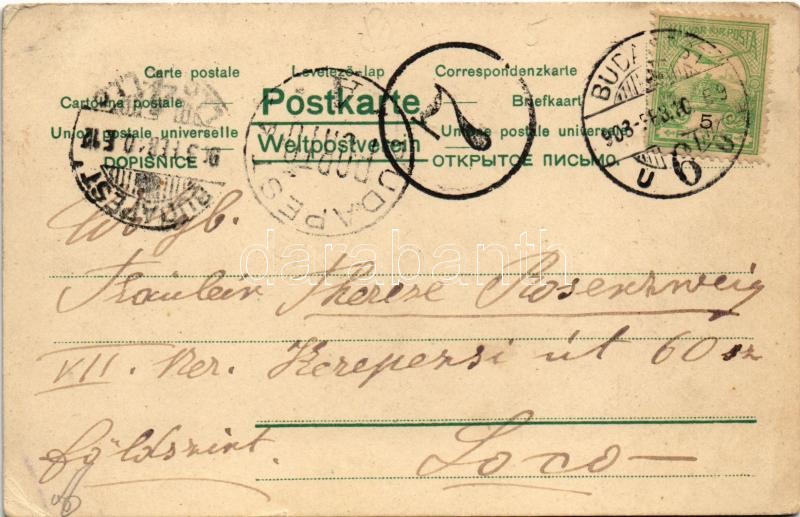 Carte postale Levelező-lap Correspondenzkarte
Cartolina postale Postkarte Briefkaart
Union postale universelle Weltpostverein Unione postale universale
DOPISNICE ОТКРЫТОЕ ПИСЬМО
MAGYAR KIR. POSTA
5
BUDAPEST
BUDAPEST
7
6
U
darabanth
Wohlgb.
Fräulein Therese Rosenzweig
VII. Ker. Kerepesi út 60 sz
földszint. Loco